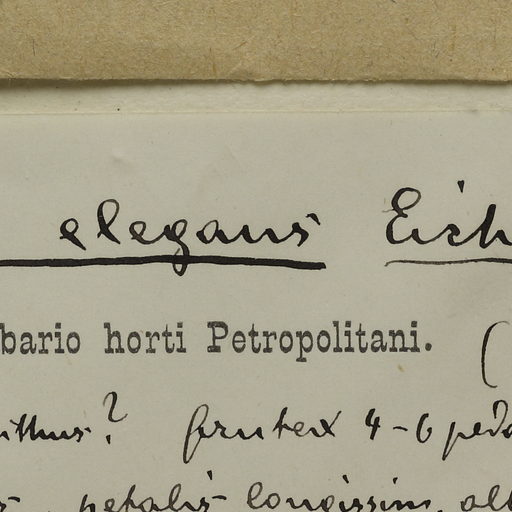 elegans Eich
bario horti Petropolitani. (
ithus? frutex 4-6 ped
petalis longissim. alb